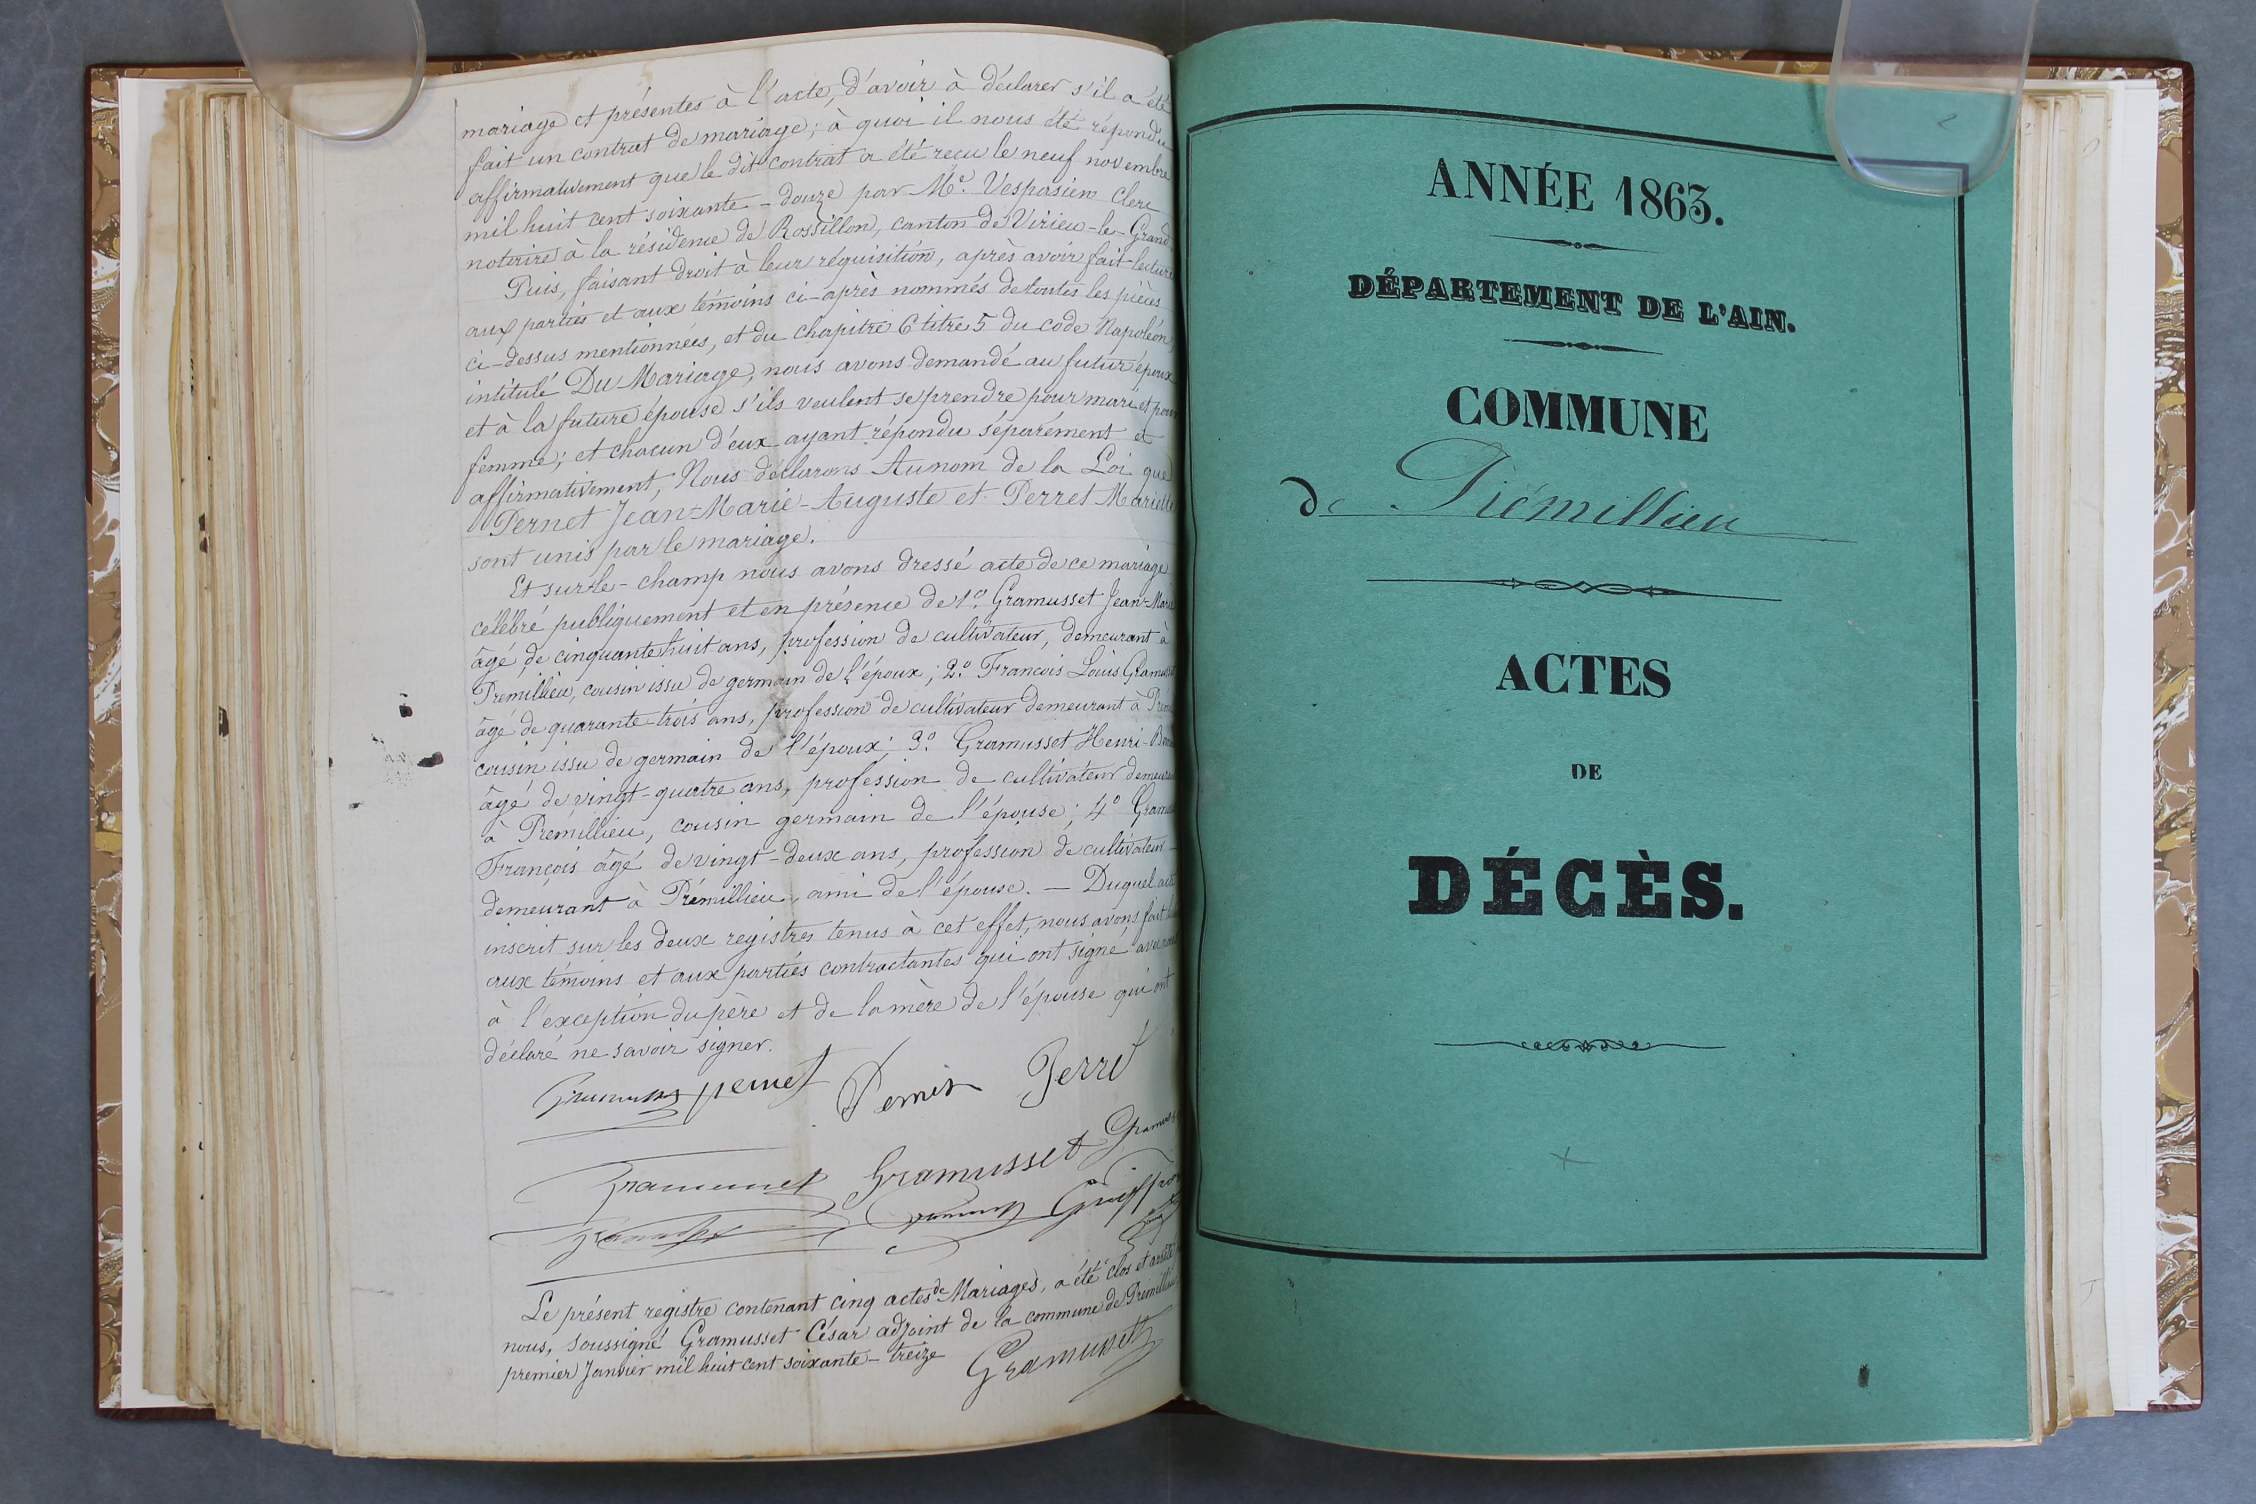 mariage et présentes à l'acte, d'avoir à déclarer s'il a été
fait un contrat de mariage; à quoi il nous été répondu
affirmativement que le dit contrat a été reçu le neuf novembre
mil huit cent soixante-douze par Me. Vespasien Clerc
notaire à la résidence de Rossillon, canton de Virieu-le-Grand
Puis, faisant droit à leur réquisition, après avoir fait lecture
aux parties et aux témoins ci-après nommés de toutes les pièces
ci-dessus mentionnées, et du chapitre 6 titre 5 du code Napoléon,
intitulé Du Mariage, nous avons demandé au futur époux
et à la future épouse s'ils veulent se prendre pour mari et pour
femme; et chacun d'eux ayant répondu séparément et
affirmativement, Nous déclarons Au nom de la Loi que
Pernet Jean-Marie-Auguste et Perret Mariette
sont unis par le mariage.
Et sur-le-champ nous avons dressé acte de ce mariage
célébré publiquement et en présence de 1o. Gramusset Jean-Marie
âgé de cinquante huit ans, profession de cultivateur, demeurant à
Prémillieu, cousin issu de germain de l'époux; 2o. François Louis Gramusset
âgé de quarante-trois ans, profession de cultivateur demeurant à
cousin issu de germain de l'époux; 3o. Gramusset Henri
âgé de vingt-quatre ans, profession de cultivateur demeurant
à Prémillieu, cousin germain de l'épouse; 4o
François âgé de vingt-deux ans, profession de cultivateur
demeurant à Prémillieu, ami de l'épouse. — Duquel acte
inscrit sur les deux registres tenus à cet effet, nous avons fait
aux témoins et aux parties contractantes qui ont signé avec nous
à l'exception du père et de la mère de l'épouse qui ont
déclaré ne savoir signer.
Gramusset pernet Pernet Perret
Gramusset Gramusset
Le présent registre contenant cinq actes de Mariages, a été clos et arrêté
nous, soussigné Gramusset César adjoint de la commune de Prémillieu
premier Janvier mil huit cent soixante-treize
Gramusset
ANNÉE 1863.
DÉPARTEMENT DE L'AIN.
COMMUNE
de Prémillieu
ACTES
DE
DÉCÈS.